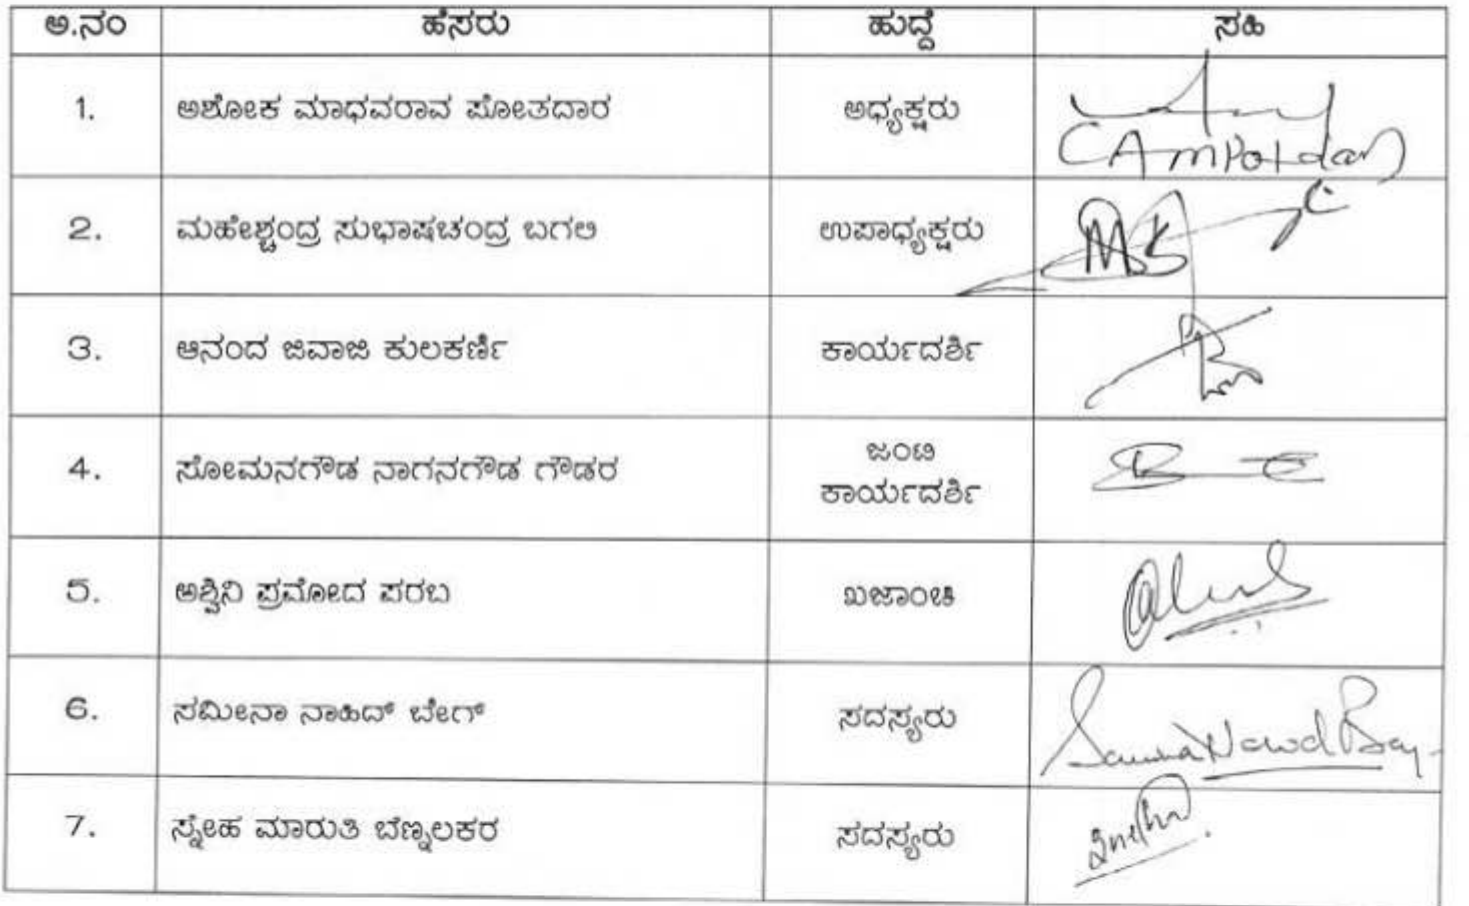 ಅ.ನಂ ಹೆಸರು ಹುದ್ದೆ ಸಹಿ
1. ಅಶೋಕ ಮಾಧವರಾವ ಪೋತದಾರ ಅಧ್ಯಕ್ಷರು
CAMPotdar)
2. ಮಹೇಶ್ಚಂದ್ರ ಸುಭಾಷಚಂದ್ರ ಬಗಲಿ ಉಪಾಧ್ಯಕ್ಷರು
3. ಆನಂದ ಜಿವಾಜಿ ಕುಲಕರ್ಣಿ ಕಾರ್ಯದರ್ಶಿ
4. ಸೋಮನಗೌಡ ನಾಗನಗೌಡ ಗೌಡರ ಜಂಟಿ
ಕಾರ್ಯದರ್ಶಿ
5. ಅಶ್ವಿನಿ ಪ್ರಮೋದ ಪರಬ ಖಜಾಂಚಿ
6. ಸಮೀನಾ ನಾಹಿದ್ ಬೇಗ್ ಸದಸ್ಯರು
7. ಸ್ನೇಹ ಮಾರುತಿ ಬೆಣ್ನಲಕರ ಸದಸ್ಯರು Sneha